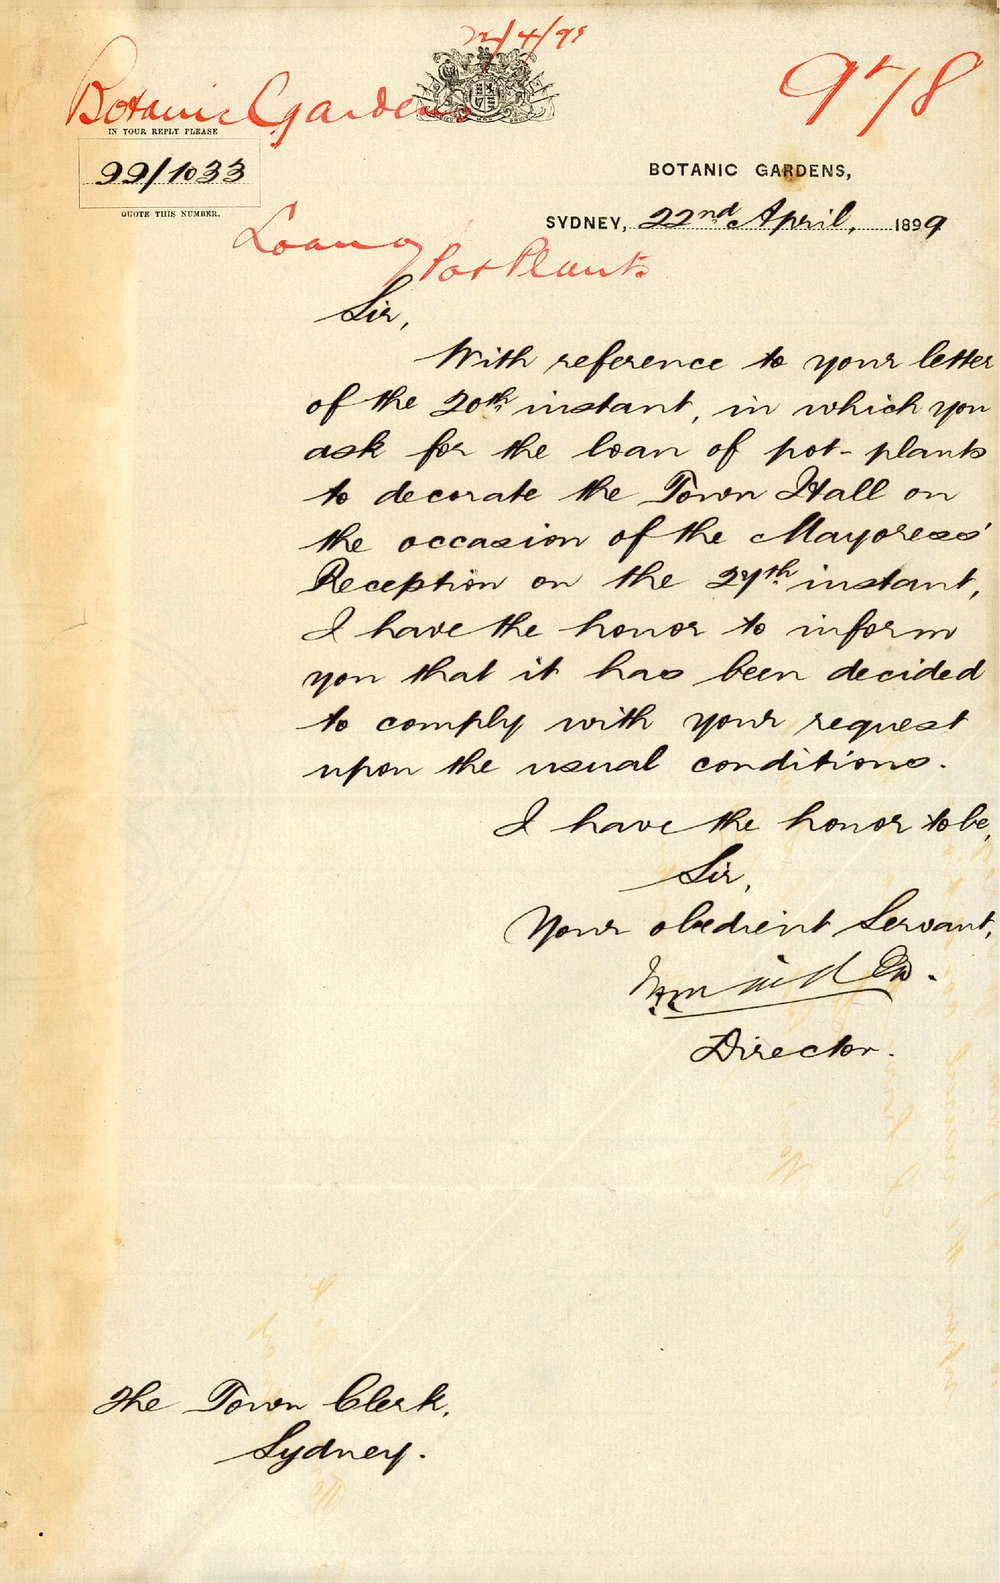 22/4/99
Botanic Gardens
978
IN YOUR REPLY PLEASE
99/1033
QUOTE THIS NUMBER.
BOTANIC GARDENS,
SYDNEY, 22nd April, 1899
Loan of
Pot Plants
Sir,
With reference to your letter
of the 20th instant, in which you
ask for the loan of pot-plants
to decorate the Town Hall on
the occasion of the Mayoress'
Reception on the 27th instant,
I have the honor to inform
you that it has been decided
to comply with your request
upon the usual conditions.
I have the honor to be,
Sir,
Your obedient Servant,
Director.
The Town Clerk,
Sydney.